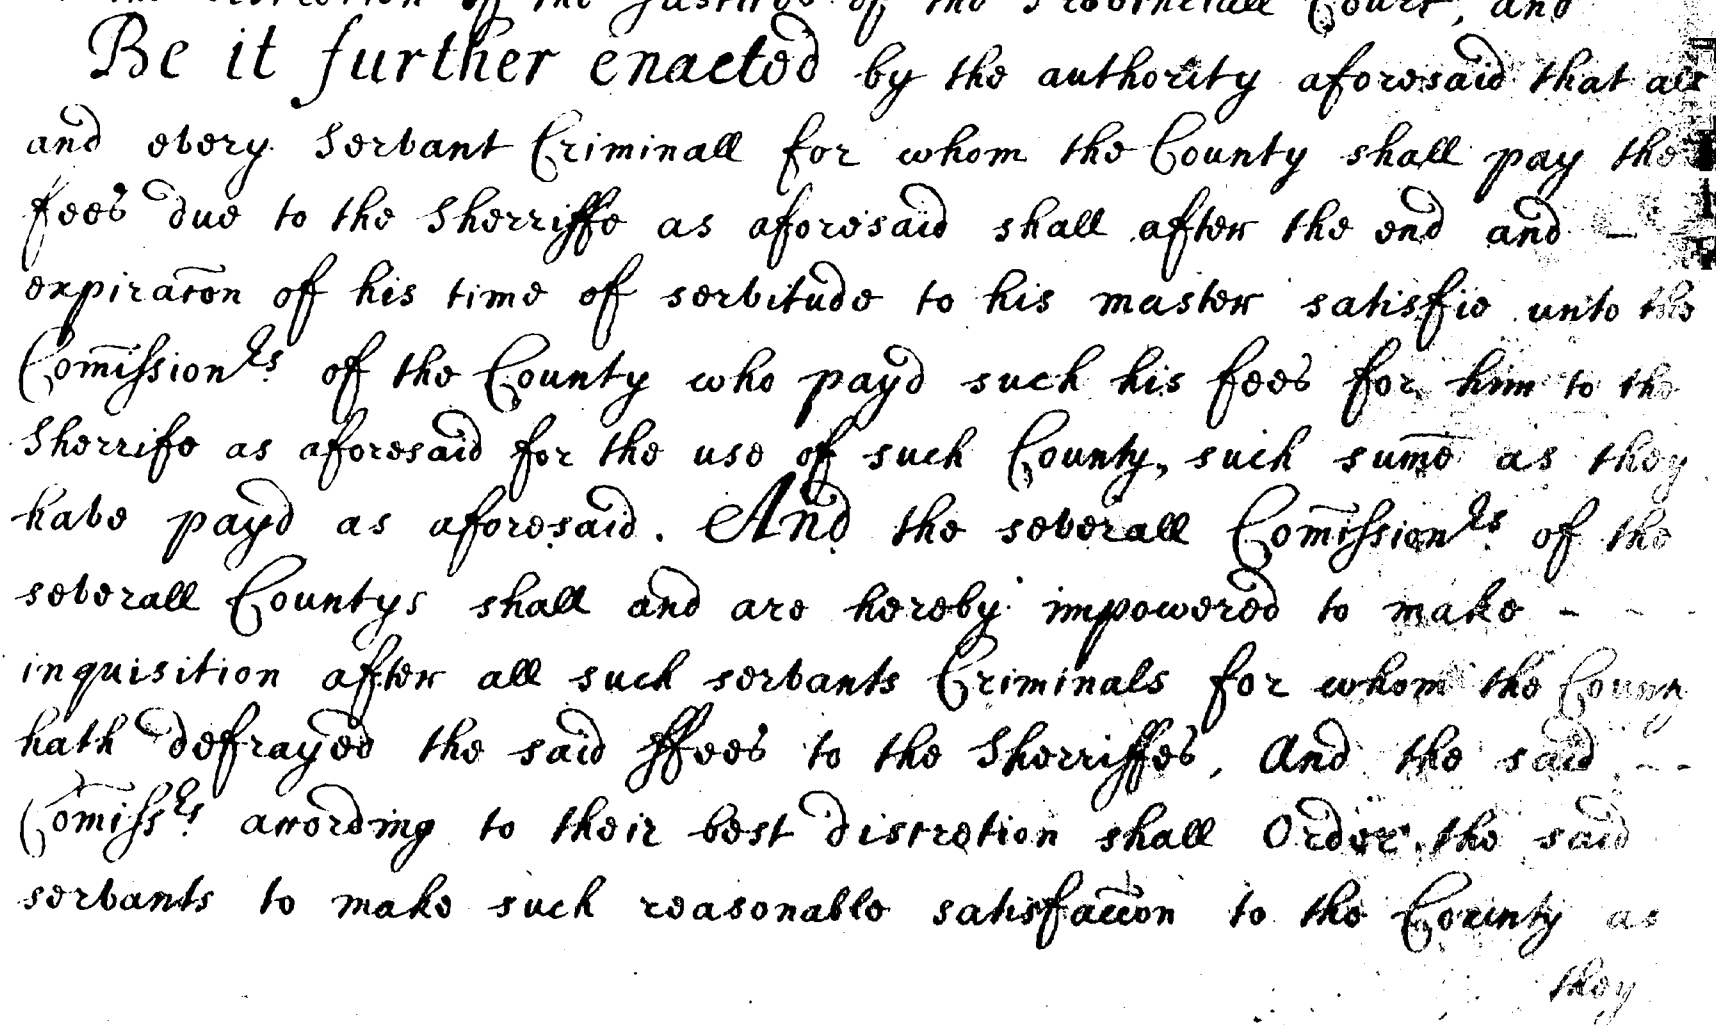 the discretion of the Justices of the Provinciall Court, and
Be it further enacted by the authority aforesaid that all
and every Servant Criminall for whom the County shall pay the
fees due to the Sherriffe as aforesaid shall after the end and –
expiracōn of his time of servitude to his master satisfie unto the
Com̄issionrs. of the County who payd such his fees for him to the
Sherrife as aforesaid for the use of such County, such sum̄e as they
have payd as aforesaid. And the severall Com̄issionrs. of the
severall Countys shall and are hereby impowered to make - - -
inquisition after all such servants Criminals for whom the County
hath defrayed the said ffees to the Sherriffes, And the said - -
Com̄issrs. according to their best discretion shall Order the said
servants to make such reasonable satisfaccōn to the County as
they